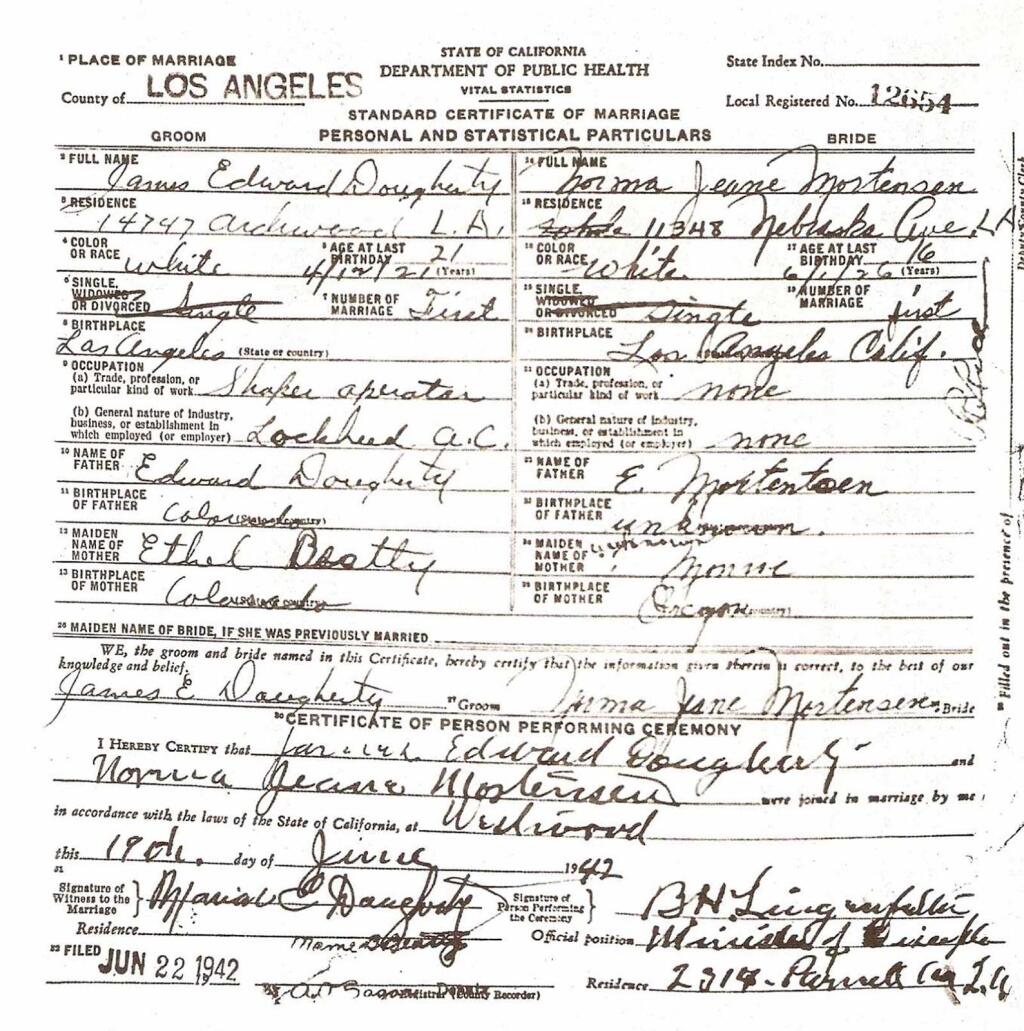 STATE OF CALIFORNIA
DEPARTMENT OF PUBLIC HEALTH
VITAL STATISTICS
1 PLACE OF MARRIAGE
County of LOS ANGELES
State Index No.
Local Registered No. 12654
STANDARD CERTIFICATE OF MARRIAGE
GROOM PERSONAL AND STATISTICAL PARTICULARS BRIDE
2 FULL NAME James Edward Dougherty
3 RESIDENCE 14747 Archwood L.A.
4 COLOR OR RACE White 5 AGE AT LAST BIRTHDAY 21 (Years) 4/12/21
6 SINGLE, WIDOWED OR DIVORCED Single 7 NUMBER OF MARRIAGE First
8 BIRTHPLACE Los Angeles (State or country)
9 OCCUPATION
(a) Trade, profession, or particular kind of work Shaper operator
(b) General nature of industry, business, or establishment in which employed (or employer) Lockheed A.C.
10 NAME OF FATHER Edward Dougherty
11 BIRTHPLACE OF FATHER Colorado (State or country)
12 MAIDEN NAME OF MOTHER Ethel Beatty
13 BIRTHPLACE OF MOTHER Colorado (State or country)
14 FULL NAME Norma Jeane Mortensen
15 RESIDENCE 11348 Nebraska Ave. L.A.
16 COLOR OR RACE White 17 AGE AT LAST BIRTHDAY 16 (Years) 6/1/26
18 SINGLE, WIDOWED OR DIVORCED Single 19 NUMBER OF MARRIAGE first
20 BIRTHPLACE Los Angeles Calif.
21 OCCUPATION
(a) Trade, profession, or particular kind of work none
(b) General nature of industry, business, or establishment in which employed (or employer) none
22 NAME OF FATHER E. Mortensen
23 BIRTHPLACE OF FATHER unknown.
24 MAIDEN NAME OF MOTHER Monroe
25 BIRTHPLACE OF MOTHER Oregon
26 MAIDEN NAME OF BRIDE, IF SHE WAS PREVIOUSLY MARRIED
WE, the groom and bride named in this Certificate, hereby certify that the information given therein is correct, to the best of our
knowledge and belief.
James E Dougherty 27 Groom Norma Jeane Mortensen 28 Bride
29 Filled out in the presence of
30 CERTIFICATE OF PERSON PERFORMING CEREMONY
I HEREBY CERTIFY that James Edward Dougherty and
Norma Jeane Mortensen were joined in marriage by me
in accordance with the laws of the State of California, at Westwood
this 19th. day of June 1942
31 Signature of Witness to the Marriage } Marion E Dougherty
Signature of Person Performing the Ceremony } B.H. Lingenfelter
Residence
Official position Minister of
32 FILED JUN 22 1942
Registrar (County Recorder)
Residence